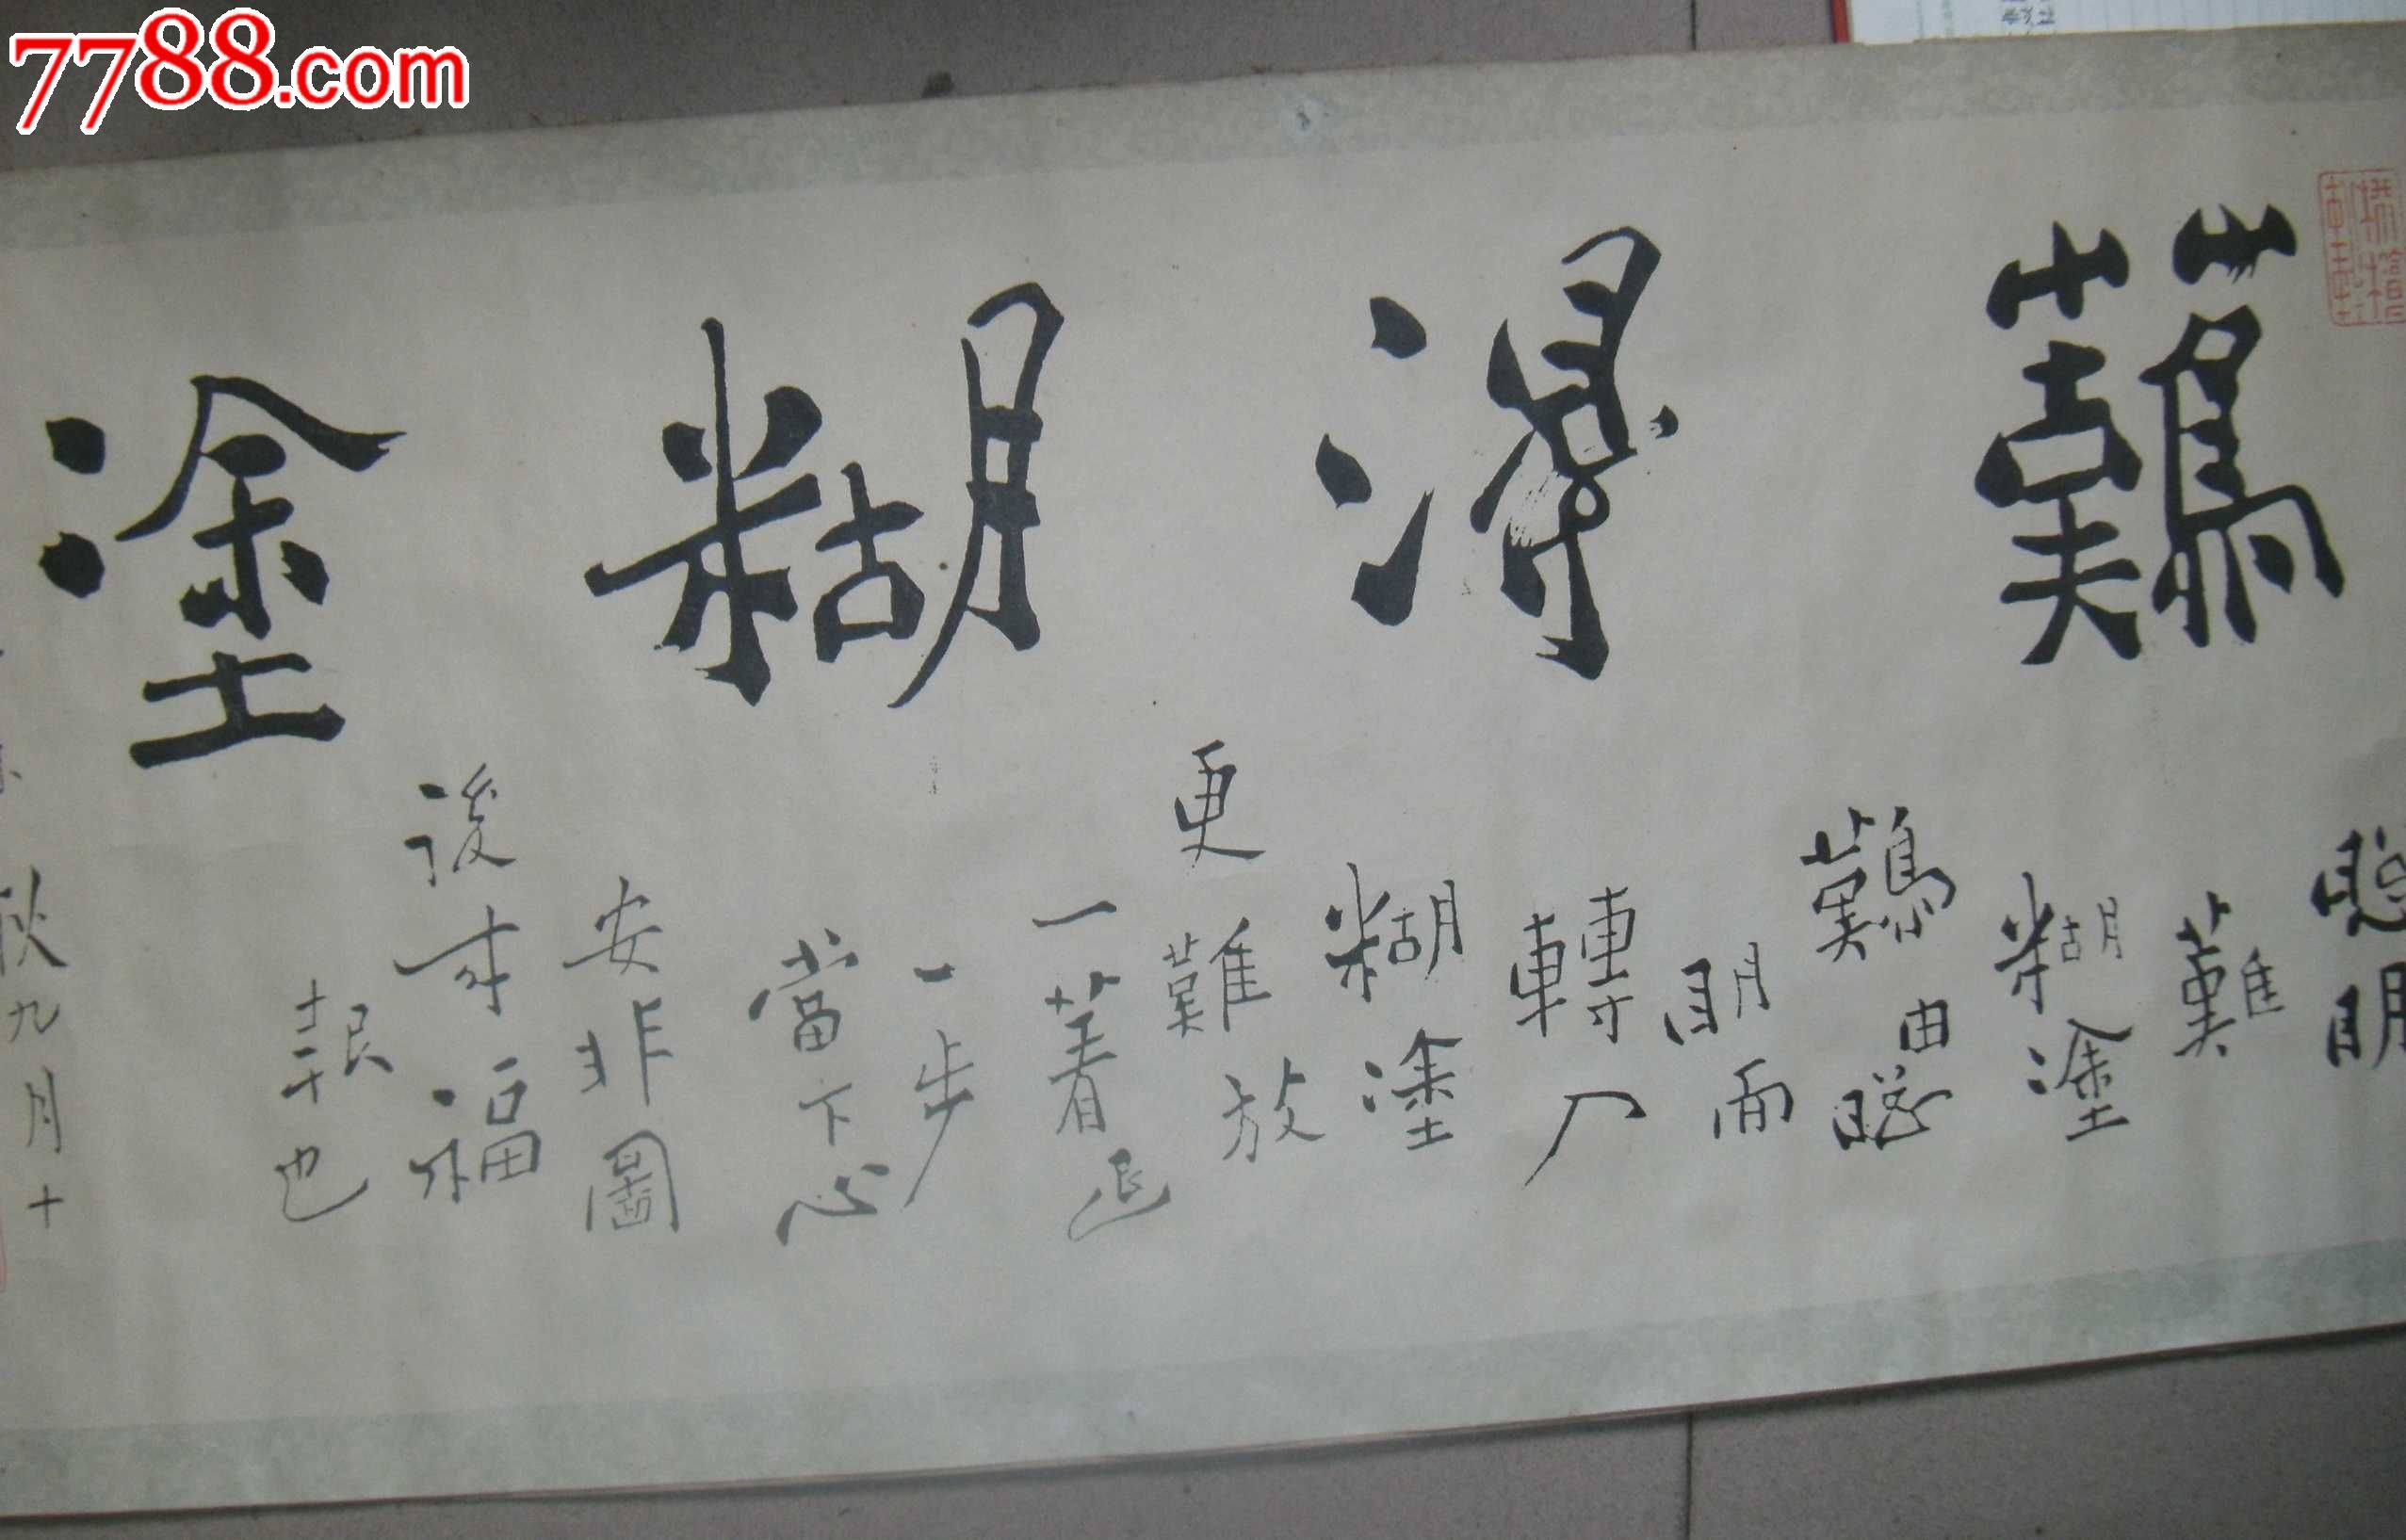 7788.com
難得糊塗
聰明
難
糊塗
難由聰
明而
轉入
糊塗
更難放
一著退
一步
當下心
安非圖
後來福
報也
秋九月十